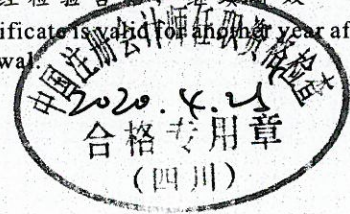 ificate is valid for another year af
wal.
中国注册会计师任职资格检查
2020.4.25
合格专用章
(四川)